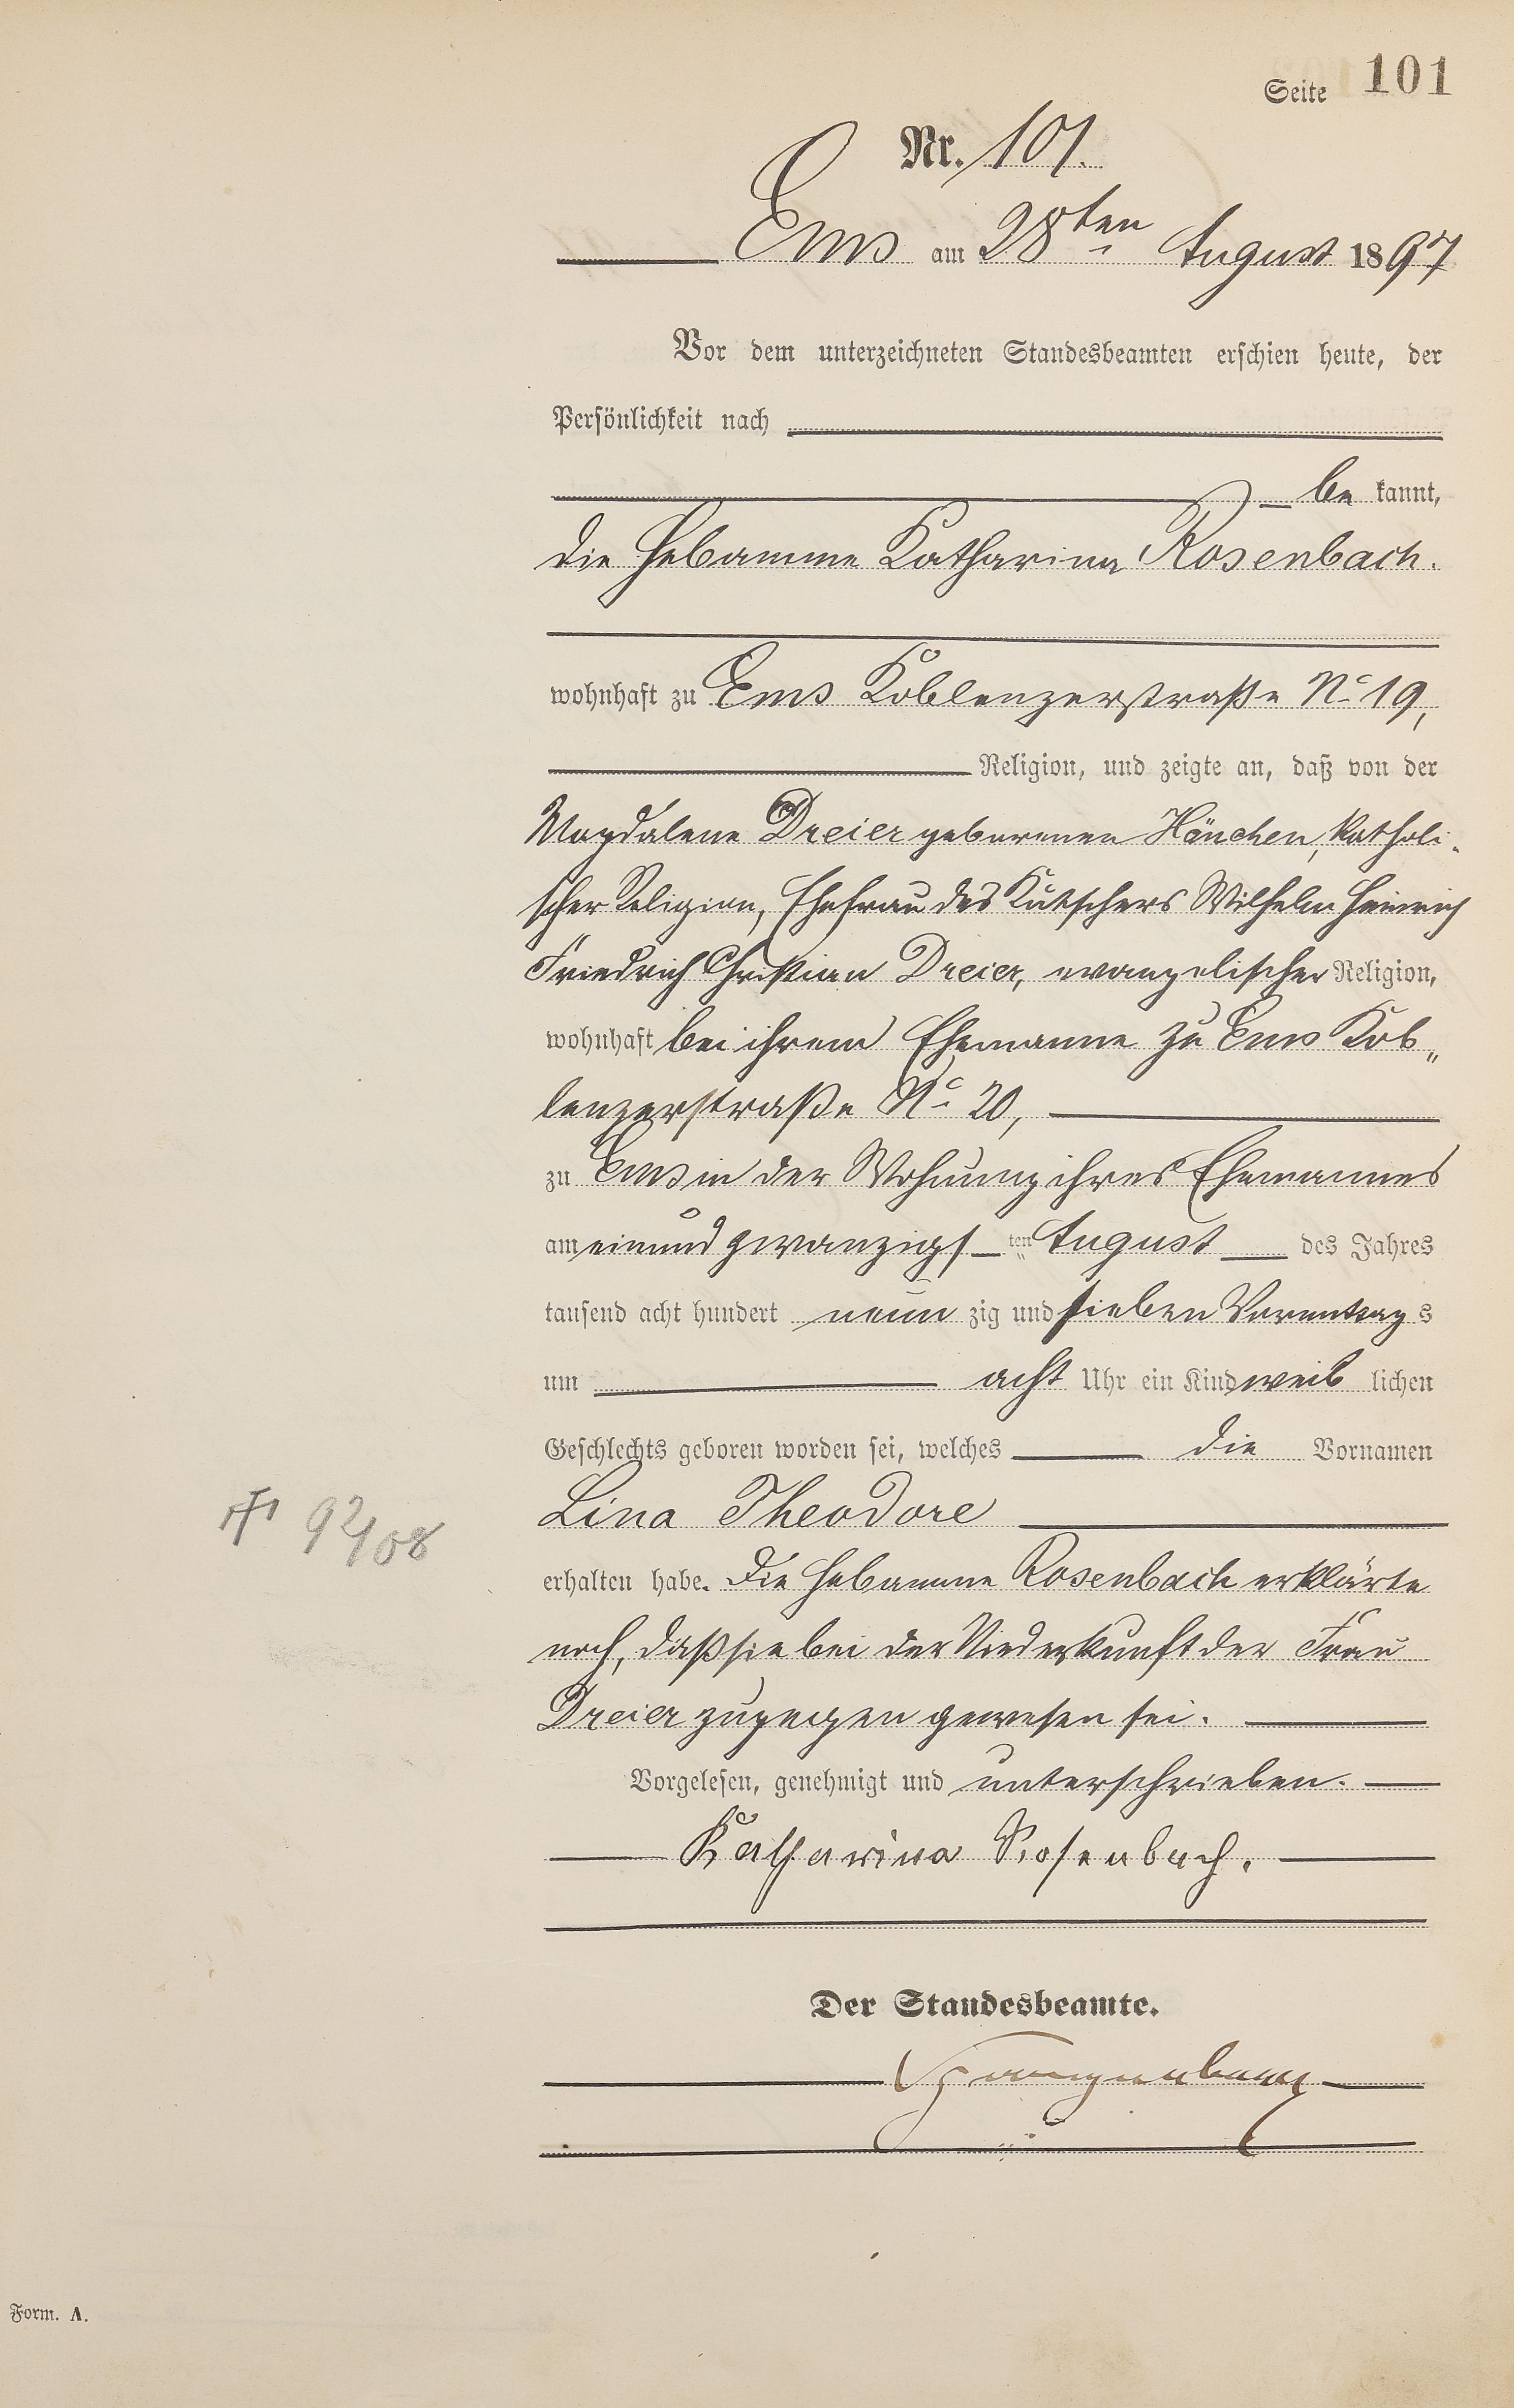 Seite 101
Nr. 101.
Ems am 28ten August 1897
Vor dem unterzeichneten Standesbeamten erschien heute, der
Persönlichkeit nach
be kannt,
die Hebamme Katharina Rosenbach.
wohnhaft zu Ems Koblenzerstraße No 19,
Religion, und zeigte an, daß von der
Magdalene Dreier geborenen Hänchen, katholi-
scher Religion, Ehefrau des Kutschers Wilhelm Heinrich
Friedrich Christian Dreier, evangelischer Religion,
wohnhaft bei ihrem Ehemanne zu Ems Kob„
lenzerstraße No 20,
zu Ems in der Wohnung ihres Ehemannes
am einund zwanzigs ten August des Jahres
tausend acht hundert neun zig und sieben Vormittag s
um acht Uhr ein Kind weib lichen
Geschlechts geboren worden sei, welches die Vornamen
Lina Theodore
† 92/08
erhalten habe. Die Hebamme Rosenbach erklärte
noch, daß sie bei der Niederkunft der Frau
Dreier zugegen gewesen sei.
Vorgelesen, genehmigt und unterschrieben.
Katharina Rosenbach.
Der Standesbeamte.
Form. A.